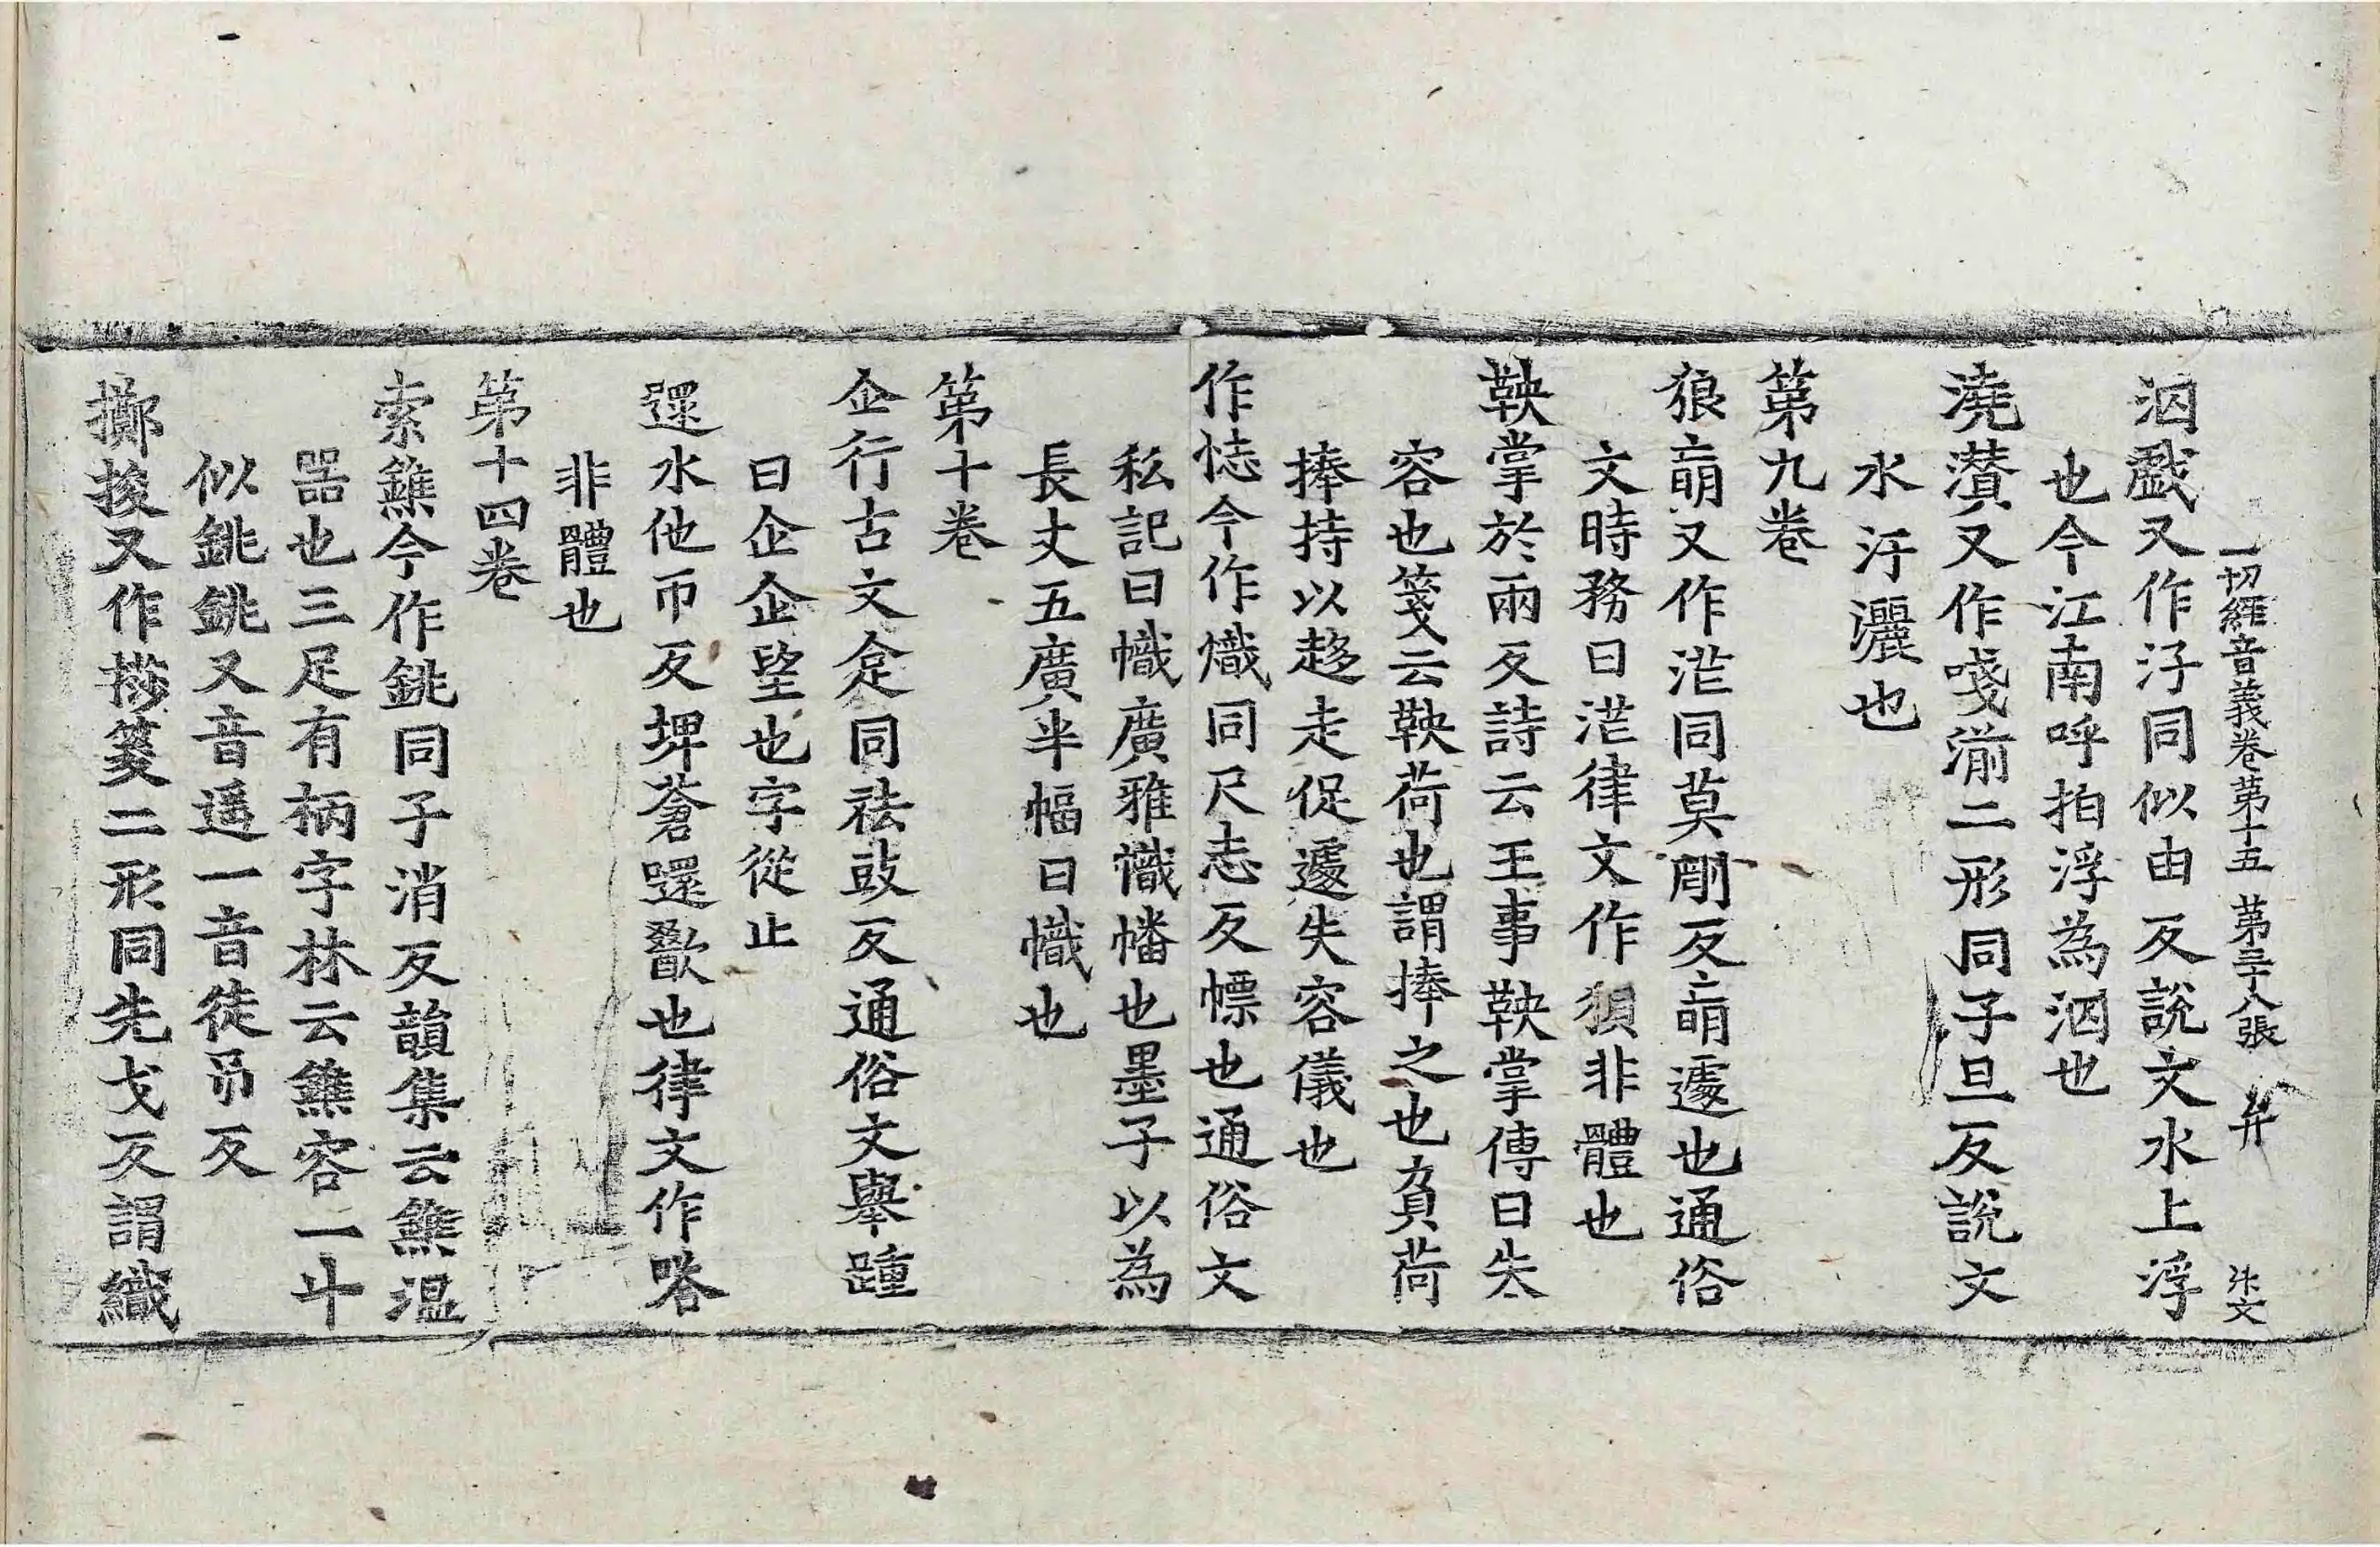 一切經音義卷第十五 第三十八張 弁 米文
泅戲又作汓同似由反說文水上浮
也今江南呼拍浮為泅也
澆灒又作㳨湔二形同子旦反說文
水汙灑也
第九卷
狼𦵹又作㳷同莫剛反𦵹遽也通俗
文時務曰㳷律文作𤝴非體也
鞅掌於兩反詩云王事鞅掌傳曰失
容也箋云鞅荷也謂捧之也負荷
捧持以趍走促遽失容儀也
作梽今作熾同尺志反幖也通俗文
私記曰幟廣雅幟幡也墨子以為
長丈五廣半幅曰幟也
第十卷
企行古文𠈮同祛豉反通俗文舉踵
曰企企望也字從止
還水他帀反埤蒼㗩歠也律文作㗳
非體也
第十四卷
索鐎今作銚同子消反韻集云鐎溫
器也三足有柄字林云鐎容一斗
似銚銚又音遥一音徒弔反
擲捘又作㧻䇥二形同先戈反謂織